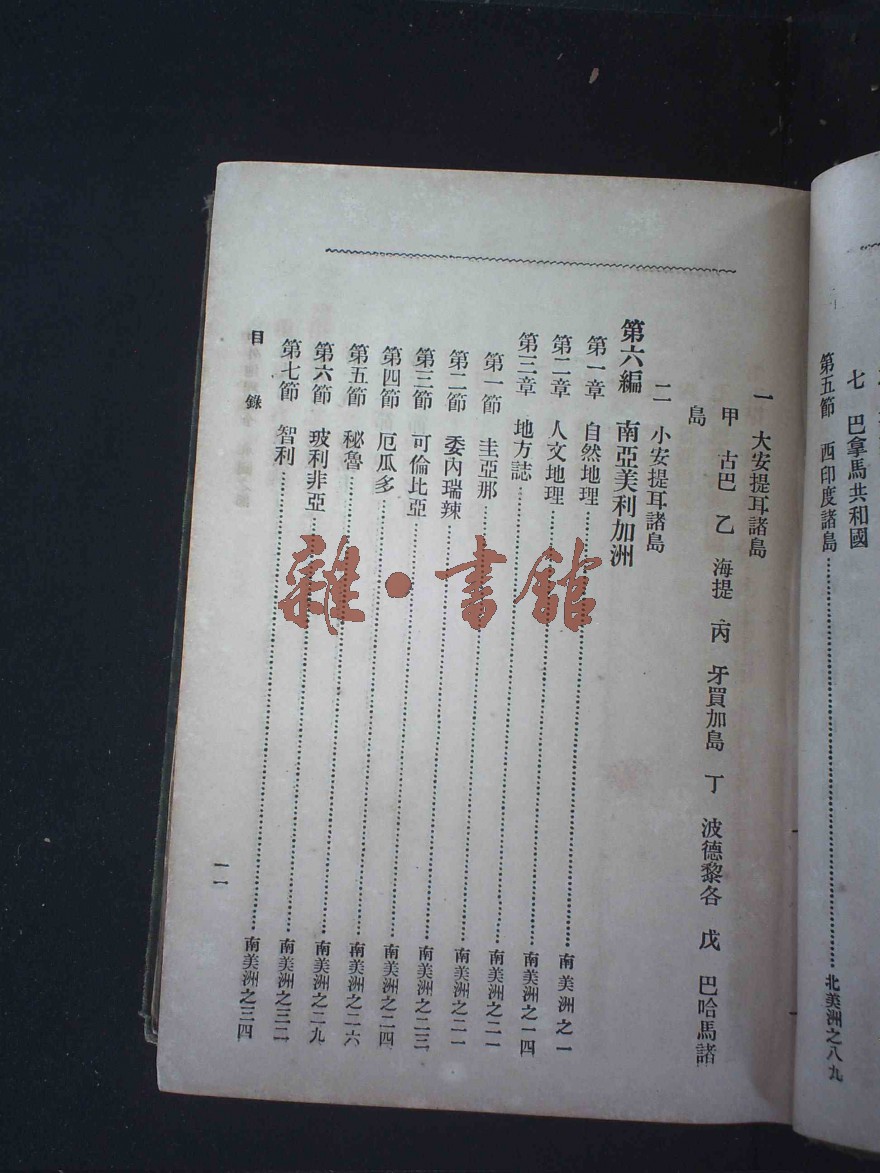 七 巴拿馬共和國
第五節 西印度諸島……北美洲之八九
一 大安提耳諸島
甲 古巴 乙 海提 丙 牙買加島 丁 波德黎各 戊 巴哈馬諸
島
二 小安提耳諸島
第六編 南亞美利加洲
第一章 自然地理……南美洲之一
第二章 人文地理……南美洲之一四
第三章 地方誌……南美洲之二一
第一節 圭亞那……南美洲之二一
第二節 委內瑞辣……南美洲之二三
第三節 可倫比亞……南美洲之二四
第四節 厄瓜多……南美洲之二六
第五節 秘魯……南美洲之二九
第六節 玻利非亞……南美洲之三二
第七節 智利……南美洲之三四
目錄
一一
雜·書館